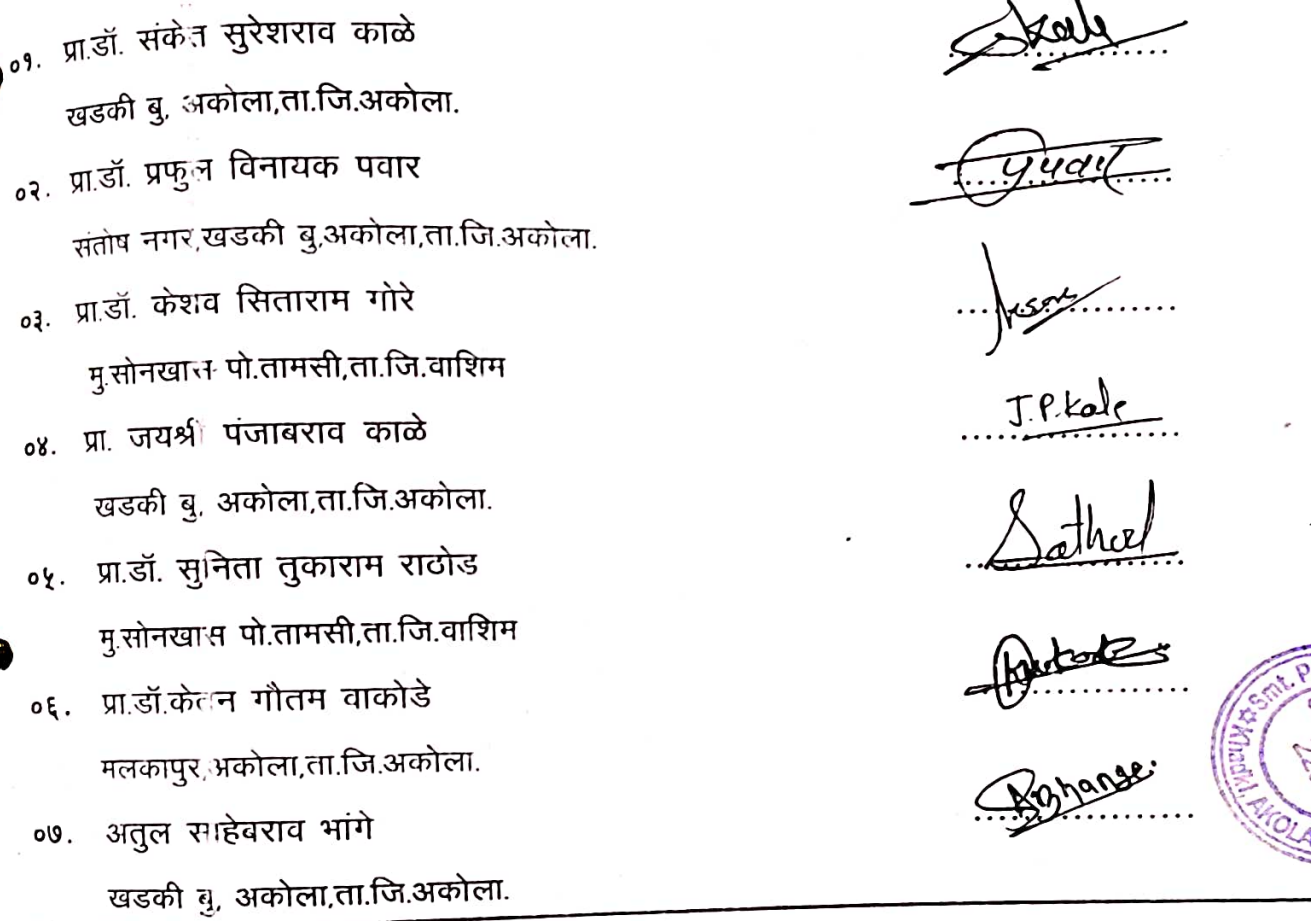 ०१. प्रा.डॉ. संकेत सुरेशराव काळे
खडकी बु, अकोला,ता.जि.अकोला.
०२. प्रा.डॉ. प्रफुल विनायक पवार
संतोष नगर,खडकी बु,अकोला,ता.जि.अकोला.
०३. प्रा.डॉ. केशव सिताराम गोरे
मु.सोनखास पो.तामसी,ता.जि.वाशिम
J.P.Kale
०४. प्रा. जयश्री पंजाबराव काळे
खडकी बु, अकोला,ता.जि.अकोला.
०५. प्रा.डॉ. सुनिता तुकाराम राठोड
मु.सोनखास पो.तामसी,ता.जि.वाशिम
०६. प्रा.डॉ.केतन गौतम वाकोडे
मलकापुर,अकोला,ता.जि.अकोला.
०७. अतुल साहेबराव भांगे
खडकी बु, अकोला,ता.जि.अकोला.
Khadki, AKOLA ☆ Smt. P